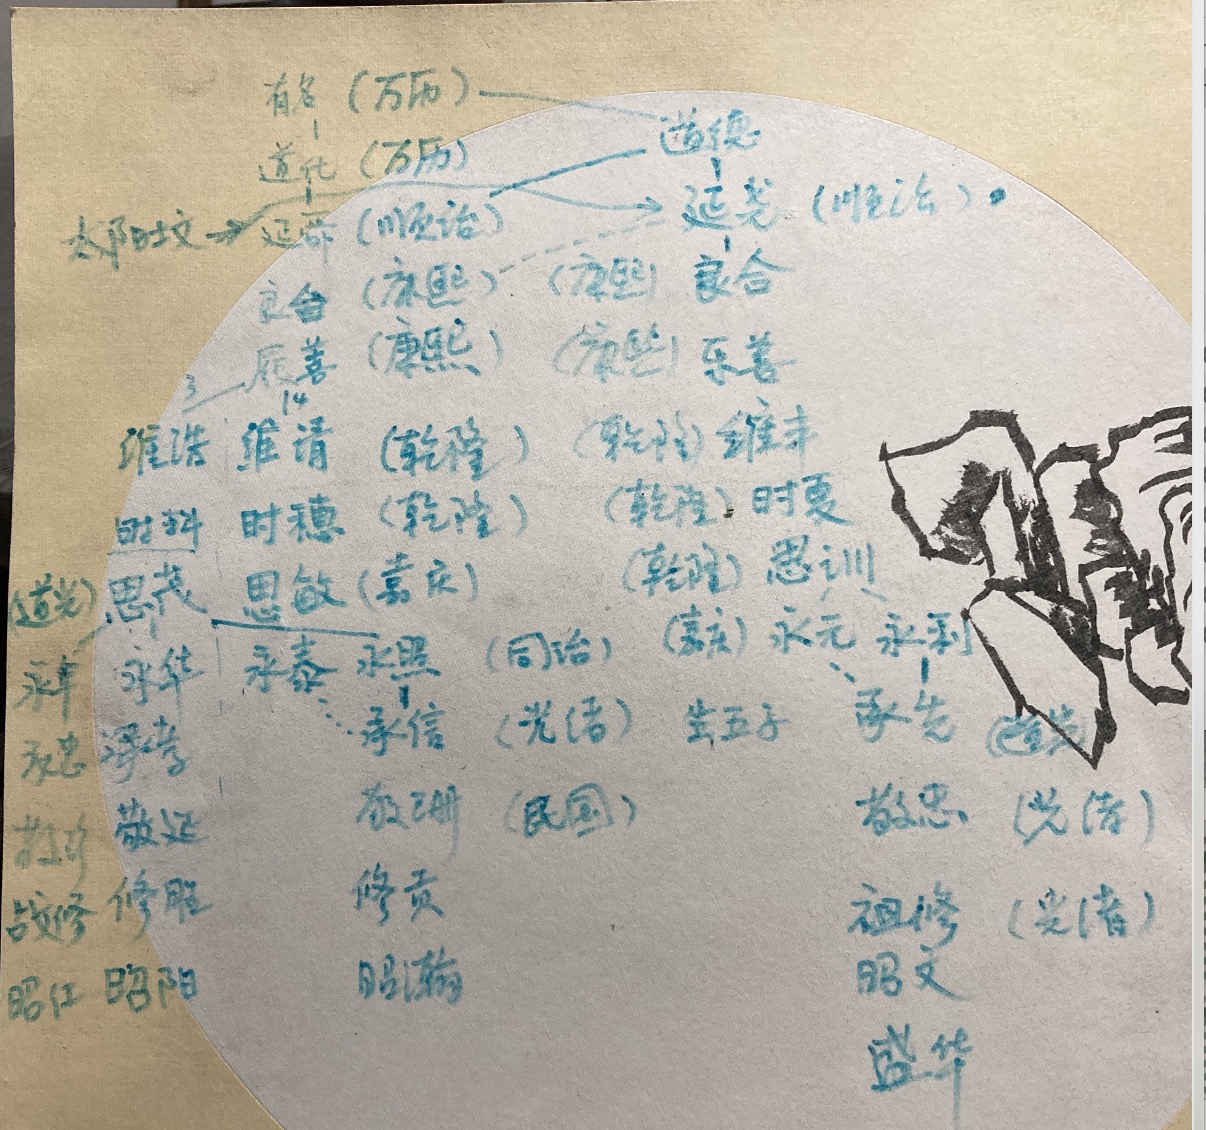 有名 (万历)
道德
道化 (万历)
延尧 (顺治)
太阳时文 延 (顺治)
良合 (康熙) (康熙) 良合
辰善 (康熙) (康熙) 乐善
3
14
维浩 维清 (乾隆) (乾隆) 维丰
时科 时穗 (乾隆) (乾隆) 时夏
(道光) 思茂 思敏 (嘉庆) (乾隆) 思训
永年 永华 永泰 永照 (同治) (嘉庆) 永元 永利
承忠 承孝 承信 (光绪) 生五子 承先 (道光)
敬延 敬珊 (民国) 敬忠 (光绪)
敬修 修胜 修贡 祖修 (光绪)
昭红 昭阳 昭瀚 昭文
盛华